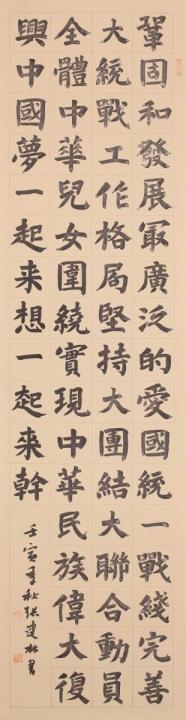 鞏固和發展最廣泛的愛國統一戰綫完善
大統戰工作格局堅持大團結大聯合動員
全體中華兒女圍繞實現中華民族偉大復
興中國夢一起来想一起来幹
壬寅季秋張建林書